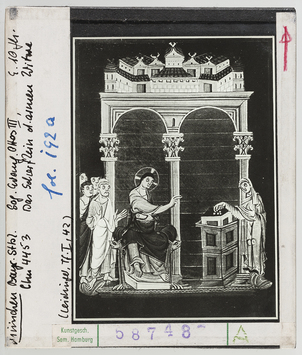 München Bayr. Stbl.
Clm 4453
Sog. Evang. Ottos III,
Das Scherflein d. armen Witwe
E. 10 Jh.
fol. 192a
(Leidinger, Tf. I, 42)
Kunstgesch.
Sem. Hamburg
58748
A